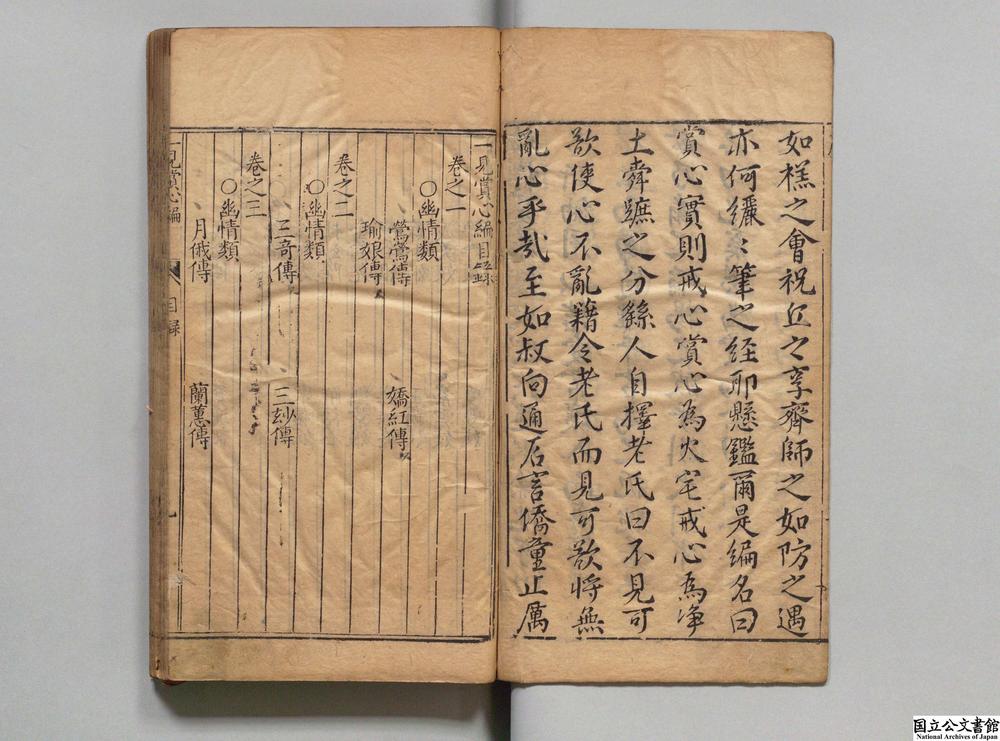 如禚之會祝丘之享齊師之如防之遇
亦何纚〻筆之経耶懸鑑爾是編名曰
賞心實則戒心賞心為火宅戒心為净
土舜蹠之分繇人自擇老氏曰不見可
欲使心不亂籍令老氏而見可欲将無
亂心乎哉至如叔向通后言僑童止厲
一見賞心編目錄
卷之一
○幽情類
鶯鶯傳 嬌紅傳
瑜娘傳
卷之二
○幽情類
三奇傳 三玅傳
卷之三
○幽情類
月俄傳 蘭蕙傳
一見賞心編 目録 一
国立公文書館
National Archives of Japan